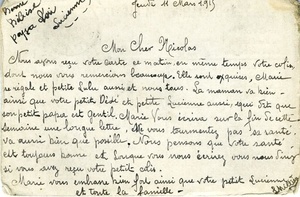 Jeudi 11 Mars 1915
Bonne
Lucienne
Mon Cher Nicolas
Nous avons reçu votre carte ce matin, en même temps votre
dont nous vous remercions beaucoup. Elle sont exquises, Marie
se régale et petite Lulu aussi et nous tous. La maman va bien
ainsi que votre petit Dédé et petite Lucienne aussi, qui dit que
son petit papa est gentil. Marie vous écrira sur la fin de cette
semaine une longue lettre. Ne vous tourmentez pas sa santé
va aussi bien que possible. Nous pensons que votre santé
est toujours bonne et lorsque vous nous écrirez vous nous direz
si vous avez reçu votre petit colis.
Marie vous embrasse bien fort ainsi que votre petite Lucienne
et toute la famille